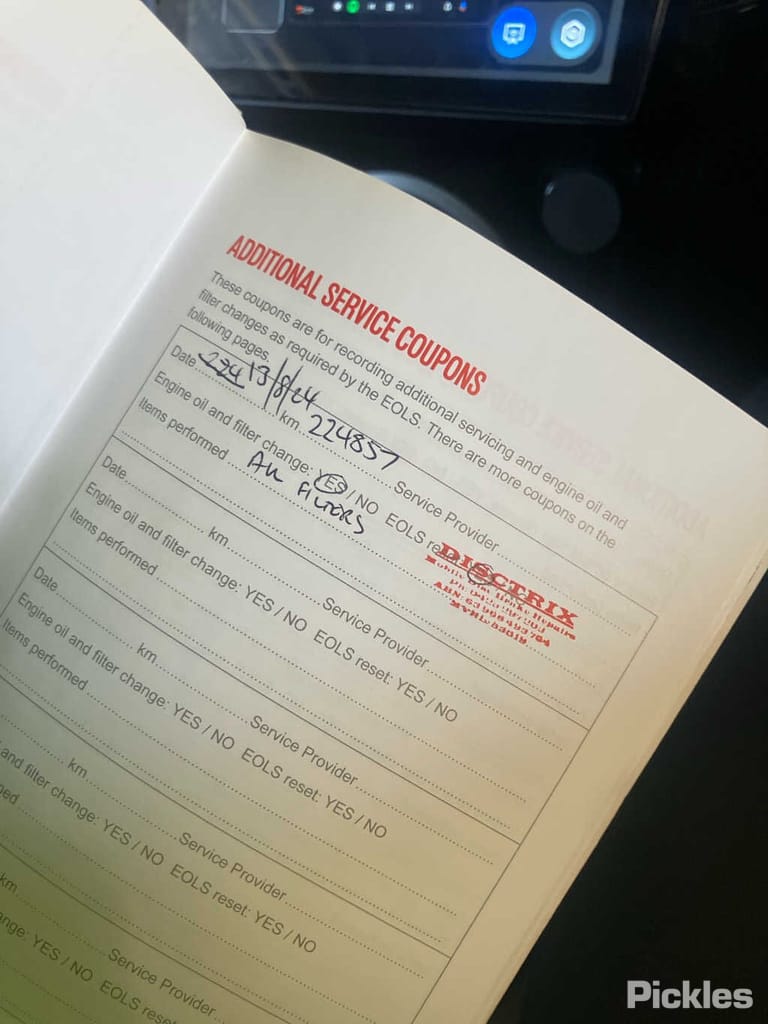 ADDITIONAL SERVICE COUPONS
These coupons are for recording additional servicing and engine oil and
filter changes as required by the EOLS. There are more coupons on the
following pages.
Date 224 13/8/24 km 224857 Service Provider
Engine oil and filter change: YES / NO EOLS reset:
Items performed ALL FILTERS
DISCTRIX
Mobile Brake Repairs
ABN: 63966493764
Date km Service Provider
Engine oil and filter change: YES / NO EOLS reset: YES / NO
Items performed
Date km Service Provider
Engine oil and filter change: YES / NO EOLS reset: YES / NO
Items performed
km Service Provider
and filter change: YES / NO EOLS reset: YES / NO
km Service Provider
YES / NO EOLS reset:
Pickles